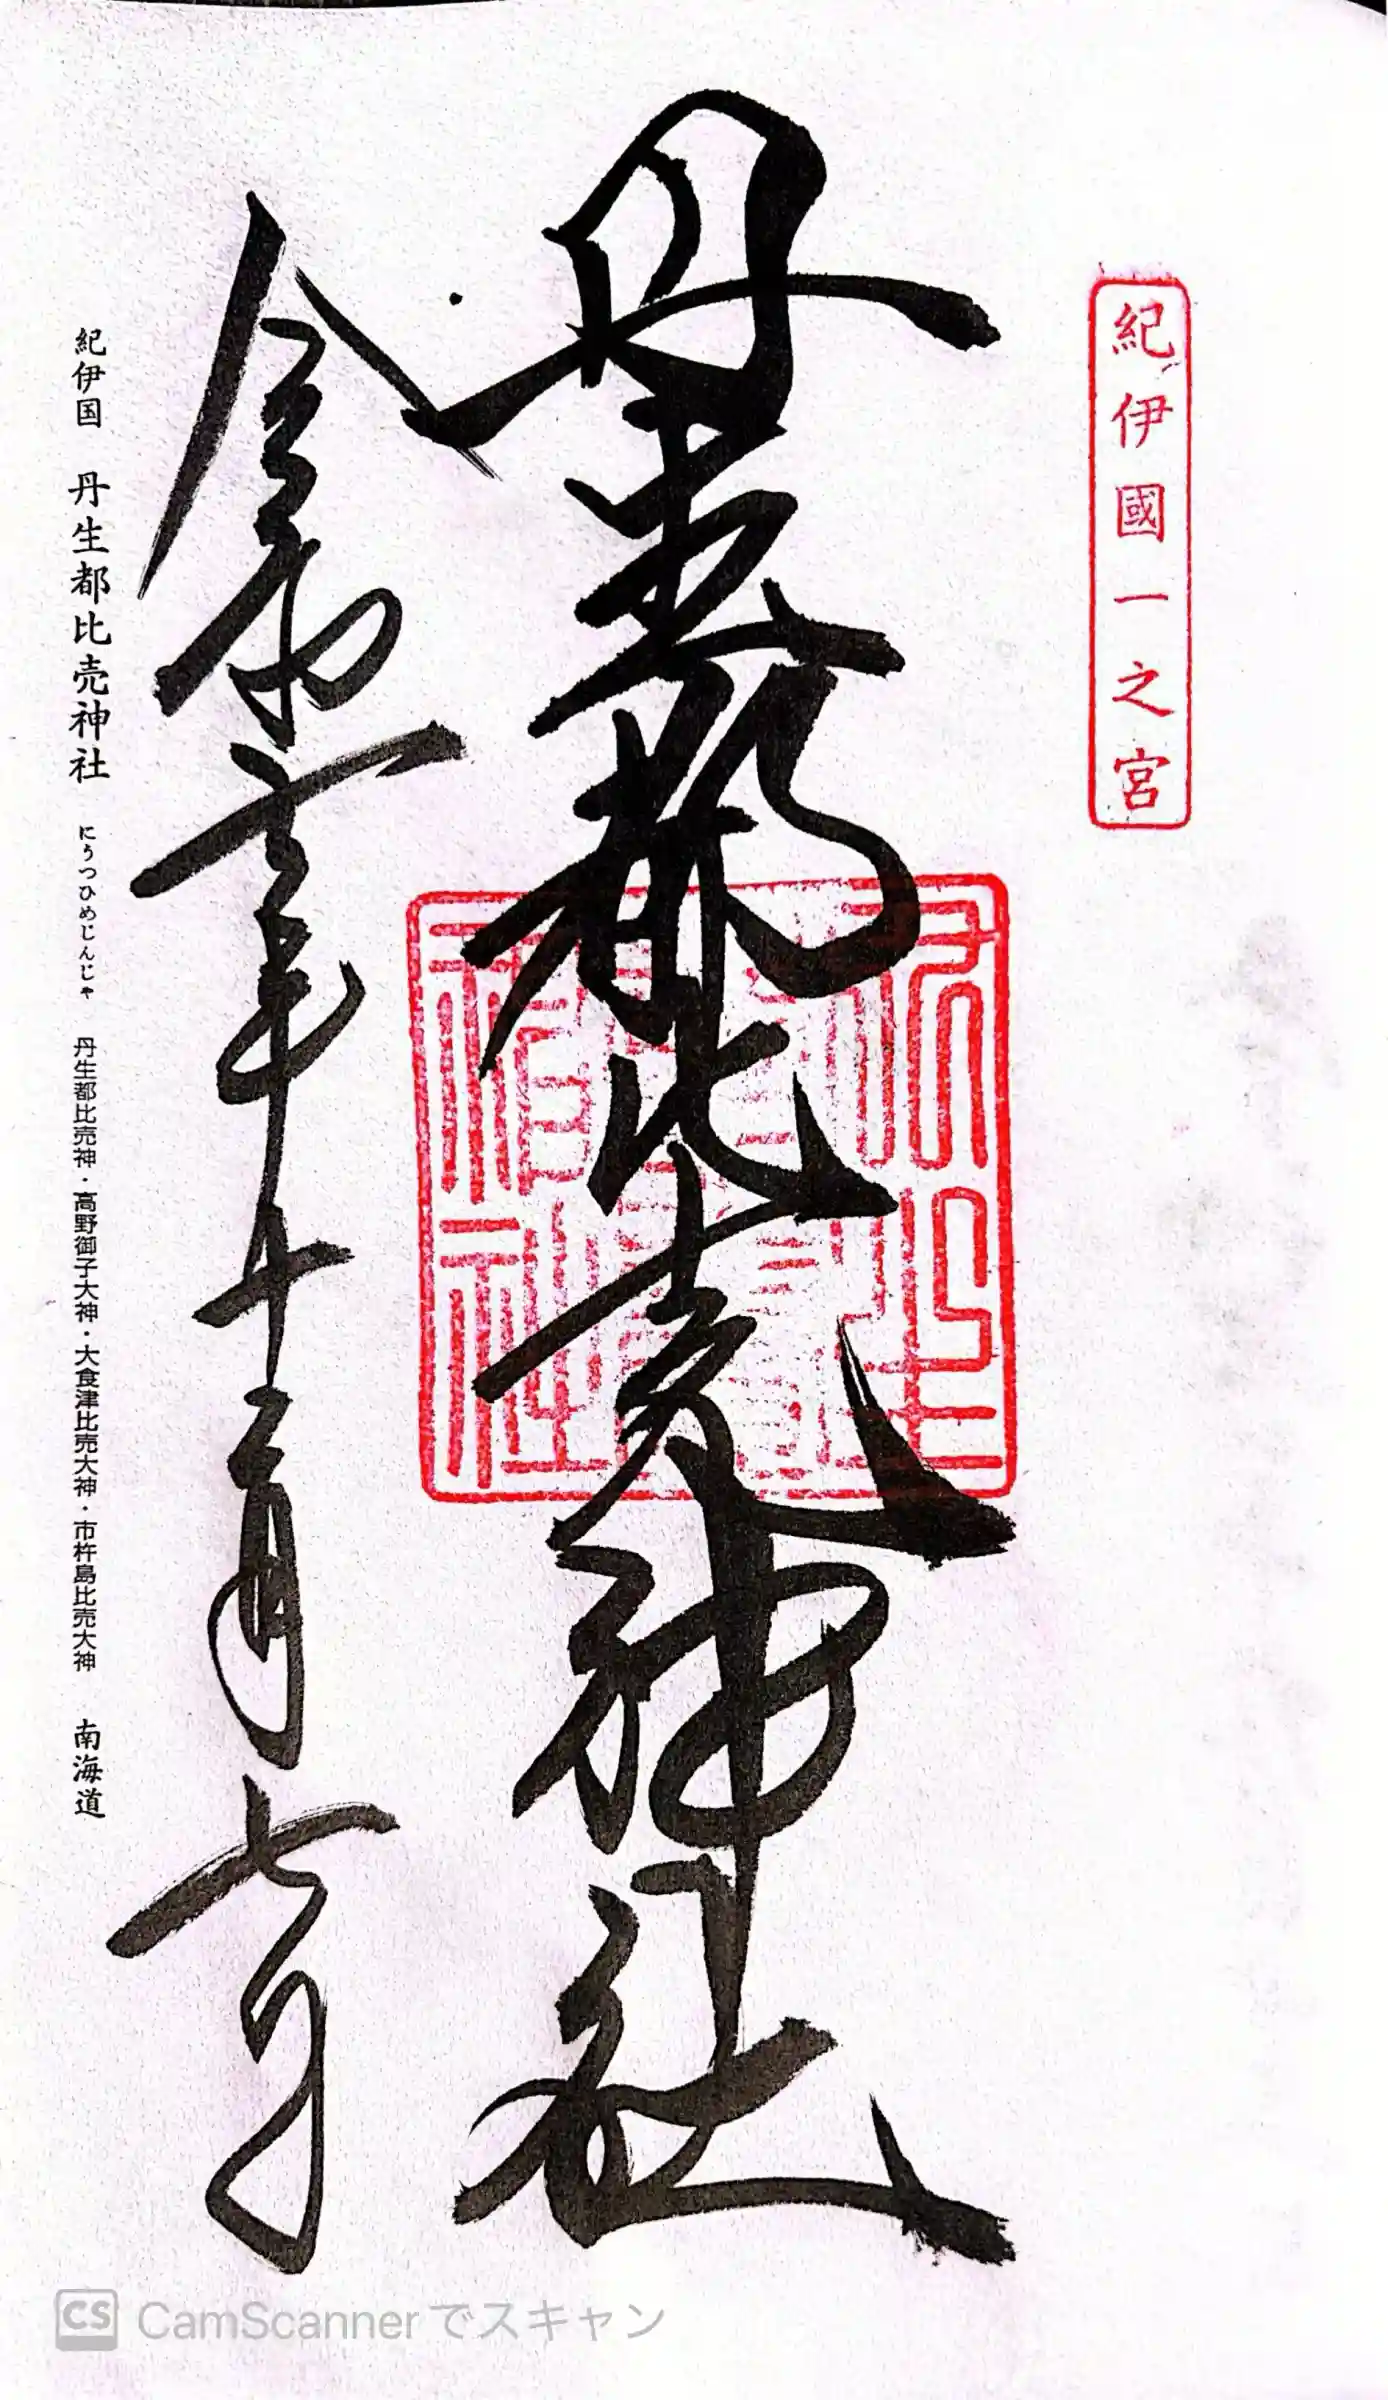 紀伊國一之宮
丹生都比売神社
令和 年十二月七日
紀伊国 丹生都比売神社 にうつひめじんじゃ 丹生都比売神・高野御子大神・大食津比売大神・市杵島比売大神 南海道
CS CamScannerでスキャン